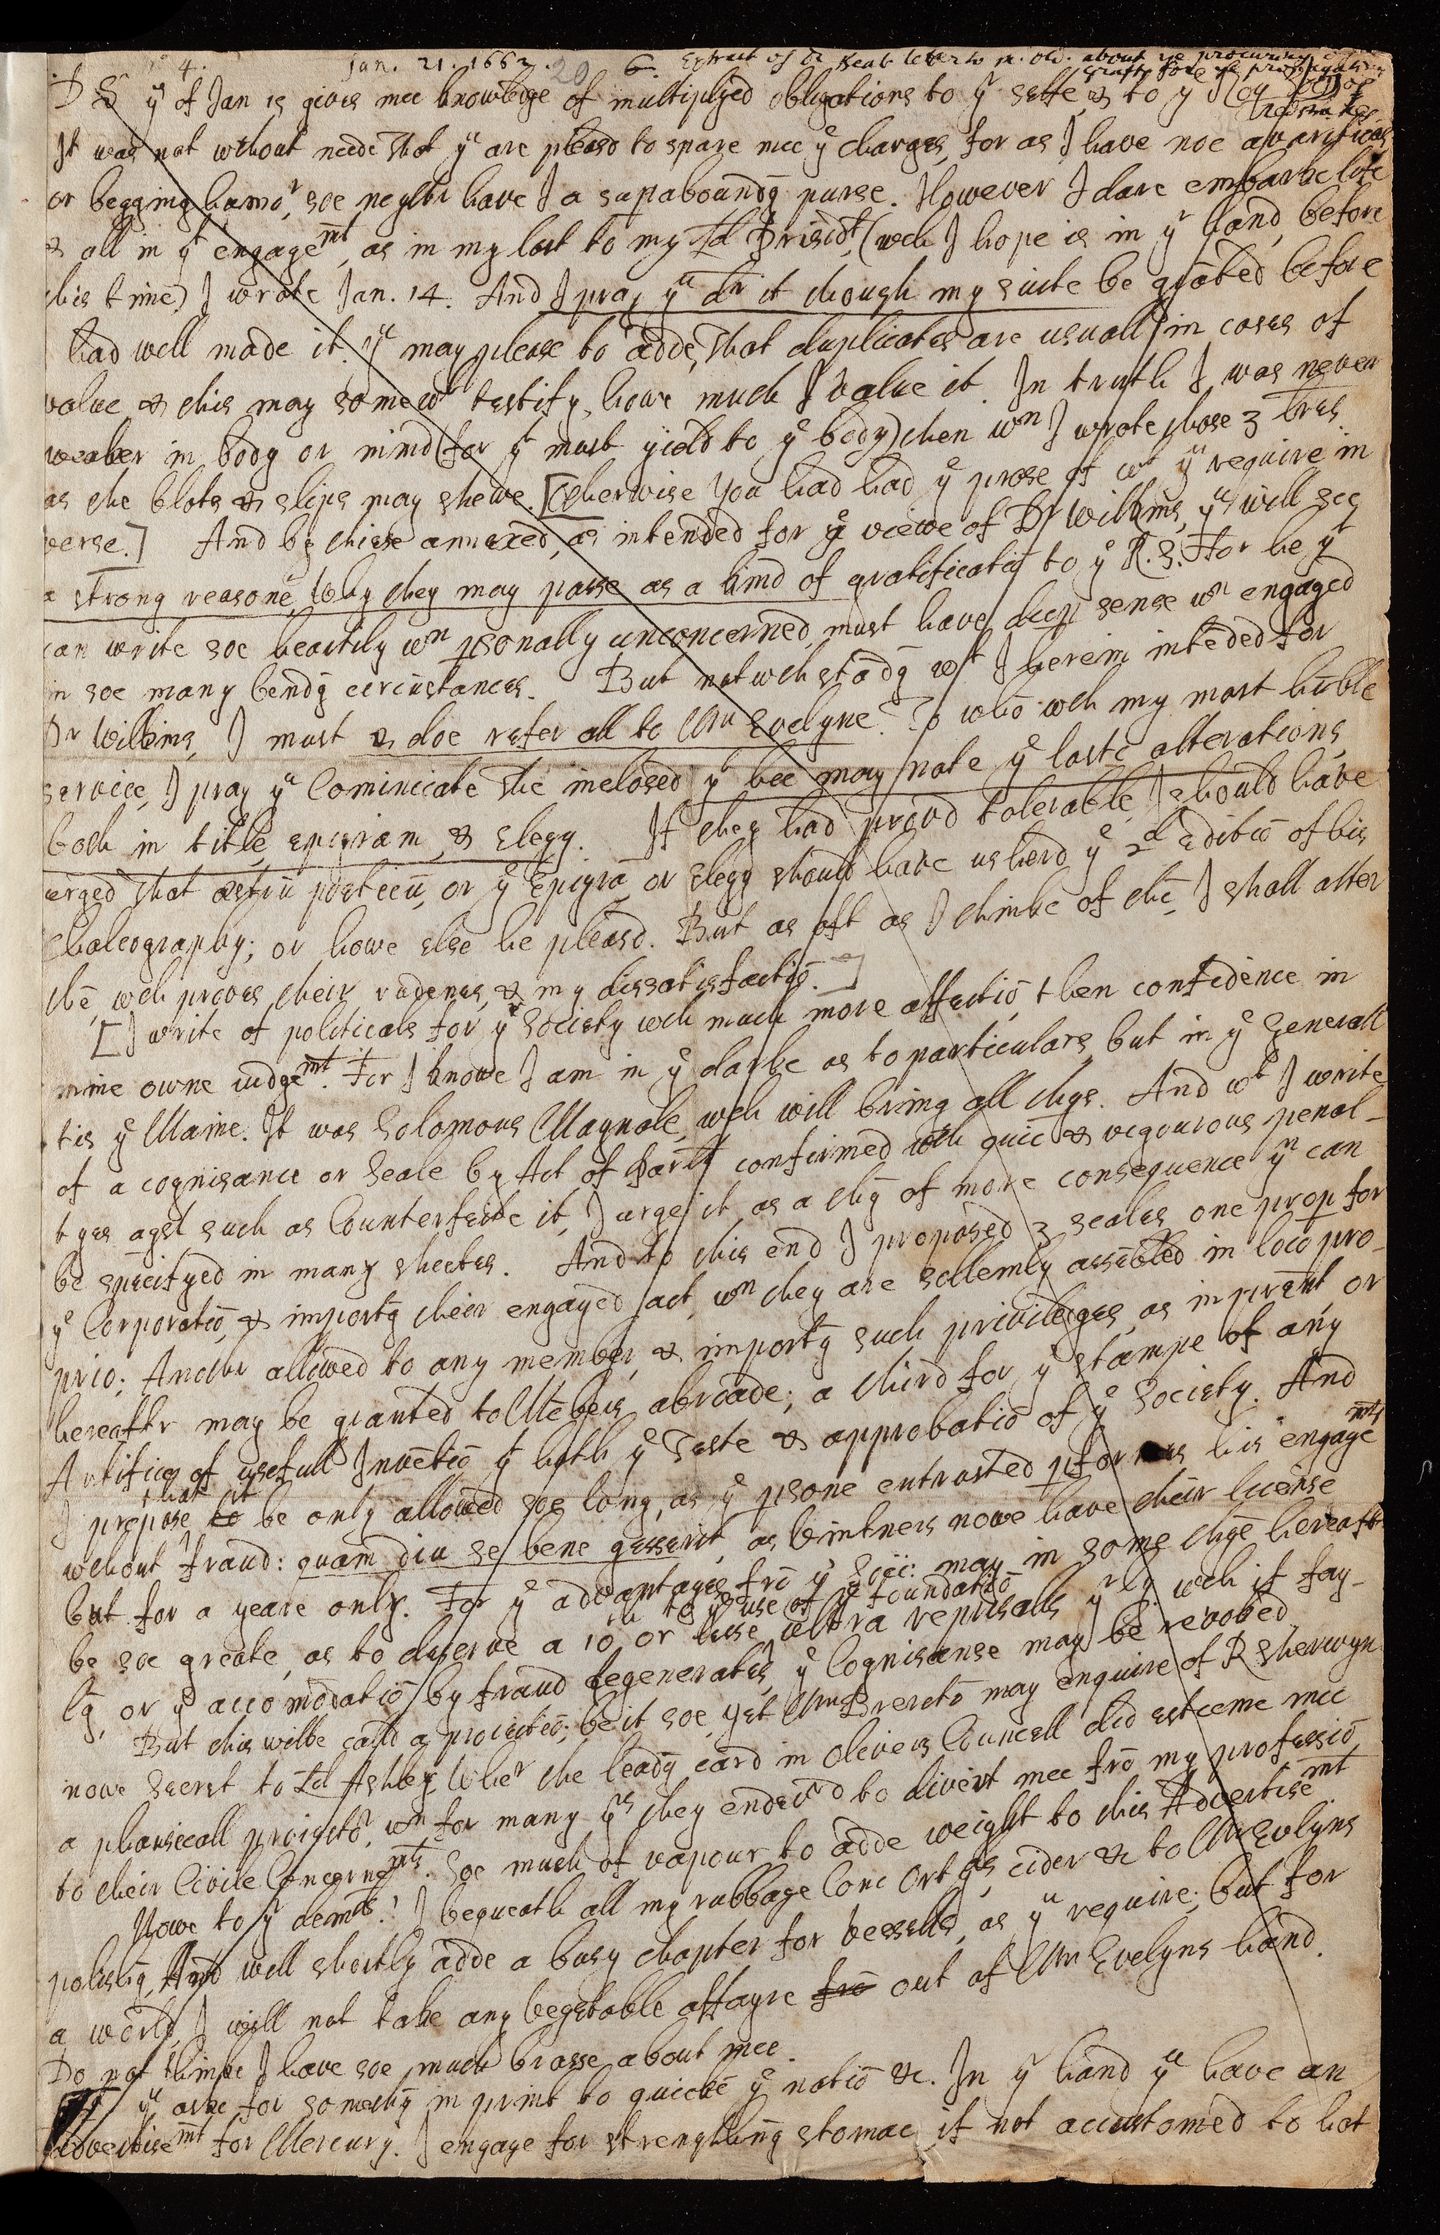 4.
Jan. 21. 1662. 20 6. Extract of Dr Beals letter to M. Old. about ye procuring
D S yrs of Jan 15 gives mee knowledge of multiplyed obligations to yr selfe, & to yr
It was not wthout neede that yu are pleasd to spare mee ye charges, for as I have noe avariticus
or begging hamor, soe neyther have I a supaboundg purse. However I dare embarke life
& all in yt engagemt, as in my last to my Ld Prisidt (wch I hope is in yr hand, before
this time) I wrote Jan. 14. And I pray yu dr it though my suite be grãted before
had well made it. Yu may please to adde, That duplicates are usuall in cases of
value & this may somewt testify, howe much I value it. In truth I was never
weaker in body or mind (for yt must yield to ye body) then wn I wrote those 3 lres
as the blots & slips may shewe. [Otherwise You had had ye prose of wt yu require in
verse.] And by these annexed, as intended for ye viewe of Dr Wilkins, yu will see
a strong reasone why they may passe as a kind of gratificatiõ to ye R. S. For he yt
can write soe heartily wn psonally unconcerned, must have deep sense wn engaged
in soe many bendg circũstances. But notwthstãdg wt I herein intẽded for
Dr Wilkins, I must & doe refer all to Mr Evelyne. To whõ wth my most hũble
service, I pray yu Cominicate the inclosed yt hee may note ye laste alterations,
both in title, epigram, & Elegy. If they had provd tolerable, I should have
urged that æstrũ poeticũ, or ye Epigrã, or Elegy should have usherd ye 2d Editiõ of his
Chalcography; or howe else he pleasd. But as oft as I thinke of thẽ, I shall alter
thẽ, wch proves their rudenes, & my dissatisfactiõ.]
[I write of politicals for yr Society wth much more affectiõ then confidence in
mine owne iudgemt. For I knowe I am in ye darke as to particulars, but in ye Generall
tis ye Maine. It was Solomons Magnale, wch will bring all thgs. And wt I write
of a cognisance or Seale by Act of Parlt confirmed wth quic & vigourous penal-
tyes agst such as Counterfeite it, I urge it as a thg of more consequence yn can
be specifyed in many sheetes. And to this end I proposed 3 seales, one prop for
ye Corporatiõ, & importg their engaged act, wn they are sollemly assẽbled in loco pro-
prio; Another allowed to any member, & importg such priviledges, as in prẽnt, or
hereafter may be granted to Mẽbers abroade; a third for ye stampe of any
Artifice of usefull Invẽtiõ yt hath ye Teste & approbatiõ of ye Society. And
I propose that it be only allowed soe long, as ye psone entrusted pformes his engagemts
wthout fraud: quam diu se bene gesserit, as Vintners nowe have their license
but for a yeare only. For ye advantages frõ ye Soci: may in some thgs hereaftr
be soe greate, as to deserve a 10, or lesse, ultra reprisalls yrly to ye use of ye foundatiõ wch if fay-
lg, or ye accomodatiõ by fraud degenerates, ye Cognisanse may be revoked.
But this wilbe calld a proiectiõ; be it soe, yet Mr Breretõ may enquire of R Sherwyn
nowe Secret to Ld Ashley, whet the leadg card in Olivers Councell did esteeme mee
a pharsecall proiector, wn for many yrs they endevrd to divert mee frõ my professiõ
to their Civile Concernemts. Soe much of vapour to adde weight to this Advertisemt.
Nowe to yr demds. I bequeath all my rubbage Conc Ortgs, cider &c to Mr Evelyns
polishg, And will shortly adde a busy chapter for vessells, as yu require; but for
a world, I will not take any vegetable affayre out of Mr Evelyns hand.
Do not thinke I have soe much brasse about mee.
yu aske for somethg in print to quickẽ ye natiõ &c. In yr hand yu have an
Advertisemt for Mercury. I engage for strengthng stomac, if not accustomed to hot